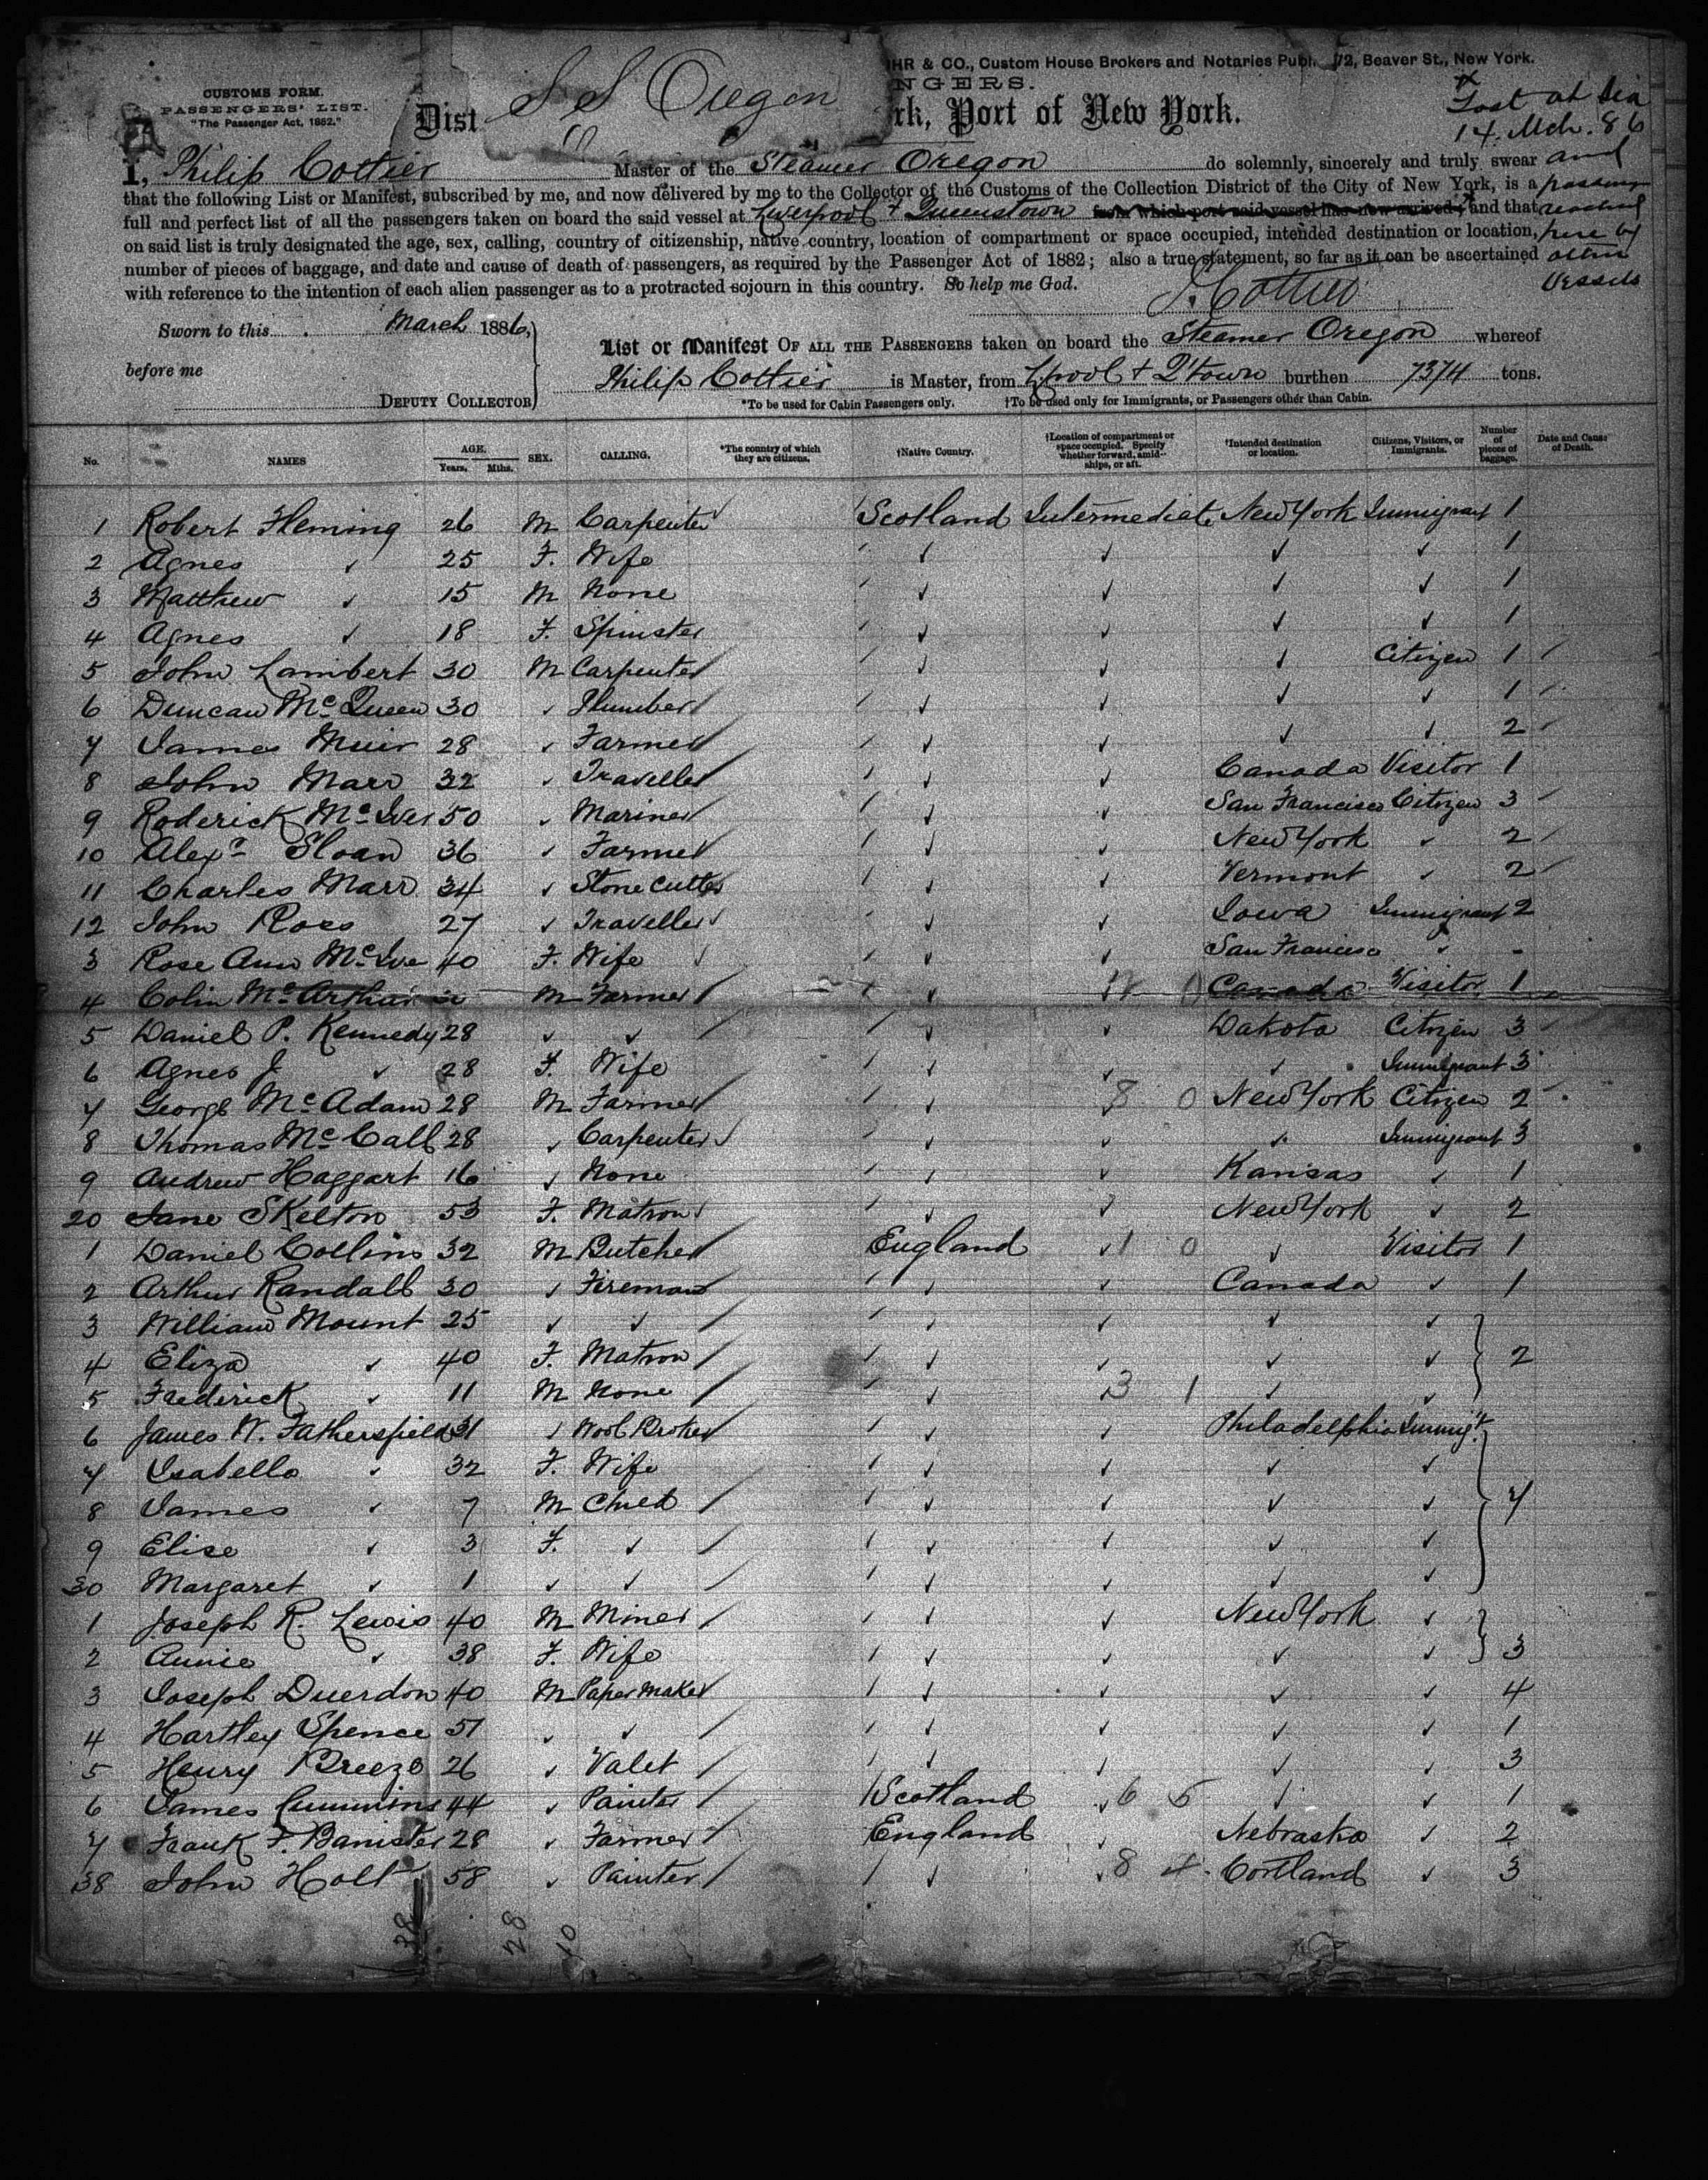 S S Oregon
HR & CO., Custom House Brokers and Notaries Publ. 72, Beaver St., New York.
CUSTOMS FORM.
PASSENGERS' LIST.
"The Passenger Act, 1882."
NGERS.
Dist rk, Port of New York.
x Lost at Sea
14. Mch. 86
and
passengers
reached
here by
other
Vessels
I, Philip Cottier Master of the Steamer Oregon do solemnly, sincerely and truly swear
that the following List or Manifest, subscribed by me, and now delivered by me to the Collector of the Customs of the Collection District of the City of New York, is a
full and perfect list of all the passengers taken on board the said vessel at Liverpool + Queenstown from which port said vessel has now arrived; x and that
on said list is truly designated the age, sex, calling, country of citizenship, native country, location of compartment or space occupied, intended destination or location,
number of pieces of baggage, and date and cause of death of passengers, as required by the Passenger Act of 1882; also a true statement, so far as it can be ascertained
with reference to the intention of each alien passenger as to a protracted sojourn in this country. So help me God.
P. Cottier
Sworn to this March 1886,
before me
DEPUTY COLLECTOR
List or Manifest OF ALL THE PASSENGERS taken on board the Steamer Oregon whereof
Philip Cottier is Master, from L'pool + Q'town burthen 7374 tons.
*To be used for Cabin Passengers only. †To be used only for Immigrants, or Passengers other than Cabin.
No. NAMES AGE. Years. Mths. SEX. CALLING. *The country of which they are citizens. †Native Country. †Location of compartment or space occupied. Specify whether forward, amidships, or aft. †Intended destination or location. Citizens, Visitors, or Immigrants. Number of pieces of baggage. Date and Cause of Death.
1 Robert Fleming 26 M Carpenter Scotland Intermediate New York Immigrant 1
2 Agnes ✓ 25 F. Wife ✓ ✓ ✓ ✓ 1
3 Matthew ✓ 15 M None ✓ ✓ ✓ ✓ 1
4 Agnes ✓ 18 F. Spinster ✓ ✓ ✓ ✓ 1
5 John Lambert 30 M Carpenter ✓ ✓ ✓ Citizen 1
6 Duncan McQueen 30 ✓ Plumber ✓ ✓ ✓ ✓ 1
7 James Muir 28 ✓ Farmer ✓ ✓ ✓ ✓ 2
8 John Marr 32 ✓ Traveller ✓ ✓ Canada Visitor 1
9 Roderick McIver 50 ✓ Mariner ✓ ✓ San Francisco Citizen 3
10 Alexr Sloan 36 ✓ Farmer ✓ ✓ New York ✓ 2
11 Charles Marr 34 ✓ Stone Cutter ✓ ✓ Vermont ✓ 2
12 John Ross 27 ✓ Traveller ✓ ✓ Iowa Immigrant 2
3 Rose Ann McIve 40 F. Wife ✓ ✓ San Francisco ✓ -
4 Colin McArthur M Farmer ✓ Canada Visitor 1
5 Daniel P. Kennedy 28 ✓ ✓ ✓ ✓ Dakota Citizen 3
6 Agnes J ✓ 28 F. Wife ✓ ✓ ✓ Immigrant 3
7 George McAdam 28 M Farmer ✓ 8 0 New York Citizen 2
8 Thomas McCall 28 ✓ Carpenter ✓ ✓ ✓ Immigrant 3
9 Andrew Haggart 16 ✓ None ✓ ✓ Kansas ✓ 1
20 Jane Skelton 53 F. Matron ✓ ✓ New York ✓ 2
1 Daniel Collins 32 M Butcher England ✓ 1 0 ✓ Visitor 1
2 Arthur Randall 30 ✓ Fireman ✓ ✓ Canada ✓ 1
3 William Mount 25 ✓ ✓ ✓ ✓ ✓ ✓
4 Eliza ✓ 40 F. Matron ✓ ✓ ✓ ✓ 2
5 Frederick ✓ 11 M None ✓ 3 1 ✓ ✓
6 James W. Fathersfield 31 ✓ Wool Broker ✓ ✓ Philadelphia Immigt
7 Isabella ✓ 32 F. Wife ✓ ✓ ✓ ✓
8 James ✓ 7 M Child ✓ ✓ ✓ ✓ 7
9 Elise ✓ 3 F. ✓ ✓ ✓ ✓ ✓
30 Margaret ✓ 1 ✓ ✓ ✓ ✓ ✓ ✓
1 Joseph R. Lewis 40 M Miner ✓ ✓ New York ✓
2 Annie ✓ 38 F. Wife ✓ ✓ ✓ ✓ 3
3 Joseph Duerdon 40 M Paper Maker ✓ ✓ ✓ ✓ 4
4 Hartley Spence 51 ✓ ✓ ✓ ✓ ✓ ✓ 1
5 Henry Breeze 26 ✓ Valet ✓ ✓ ✓ ✓ 3
6 James Cummins 44 ✓ Painter Scotland ✓ 6 5 ✓ ✓ 1
7 Frank F. Banister 28 ✓ Farmer England ✓ Nebraska ✓ 2
38 John Holt 58 ✓ Painter ✓ ✓ 8 4 Cortland ✓ 3
38 28 10